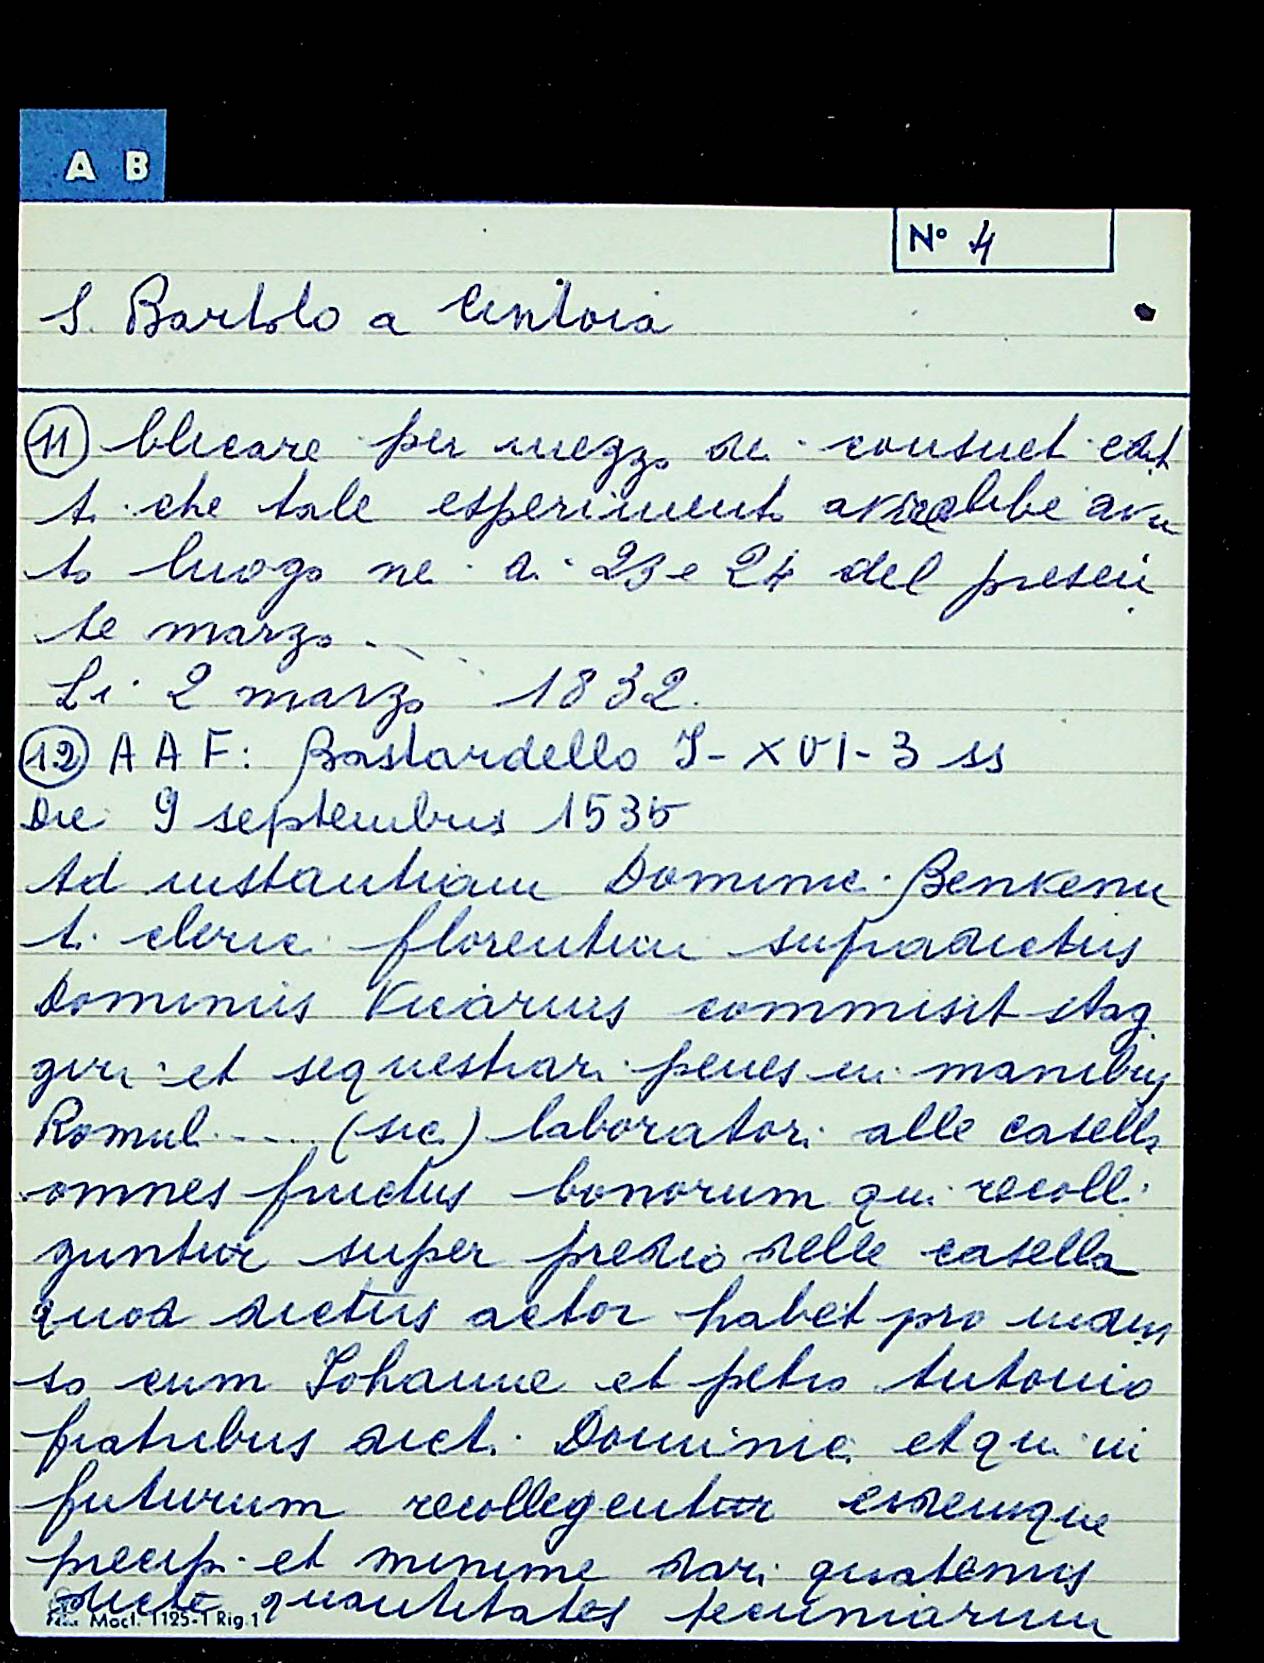 A B
N° 4
S. Bartolo a Cintoia
11 blicare per mezzo dei consueti edit
ti che tale esperimento avrebbe avu
to luogo nei dì 23 e 24 del presen
te marzo.
Li 2 marzo 1832.
12 A A F: Bastardello I-XVI-3 ss
Die 9 septembris 1535
Ad instantiam Dominici Benvenu
ti clerici florentini supradictus
Dominus Vicarius commisit stag
giri et sequestrari penes et in manibus
Romuli .... (sic) laboratori alle casella
omnes fructus bonorum qui recolli
guntur super predio delle casella
quod dictus actor habet pro indivi
so cum Iohanne et petro Antonio
fratribus dicti Dominici et qui in
futurum recollegentur eidemque
precipi et minime dari quatenus
dicte quantitates pecuniarum
Mod. 1125-1 Rig.1